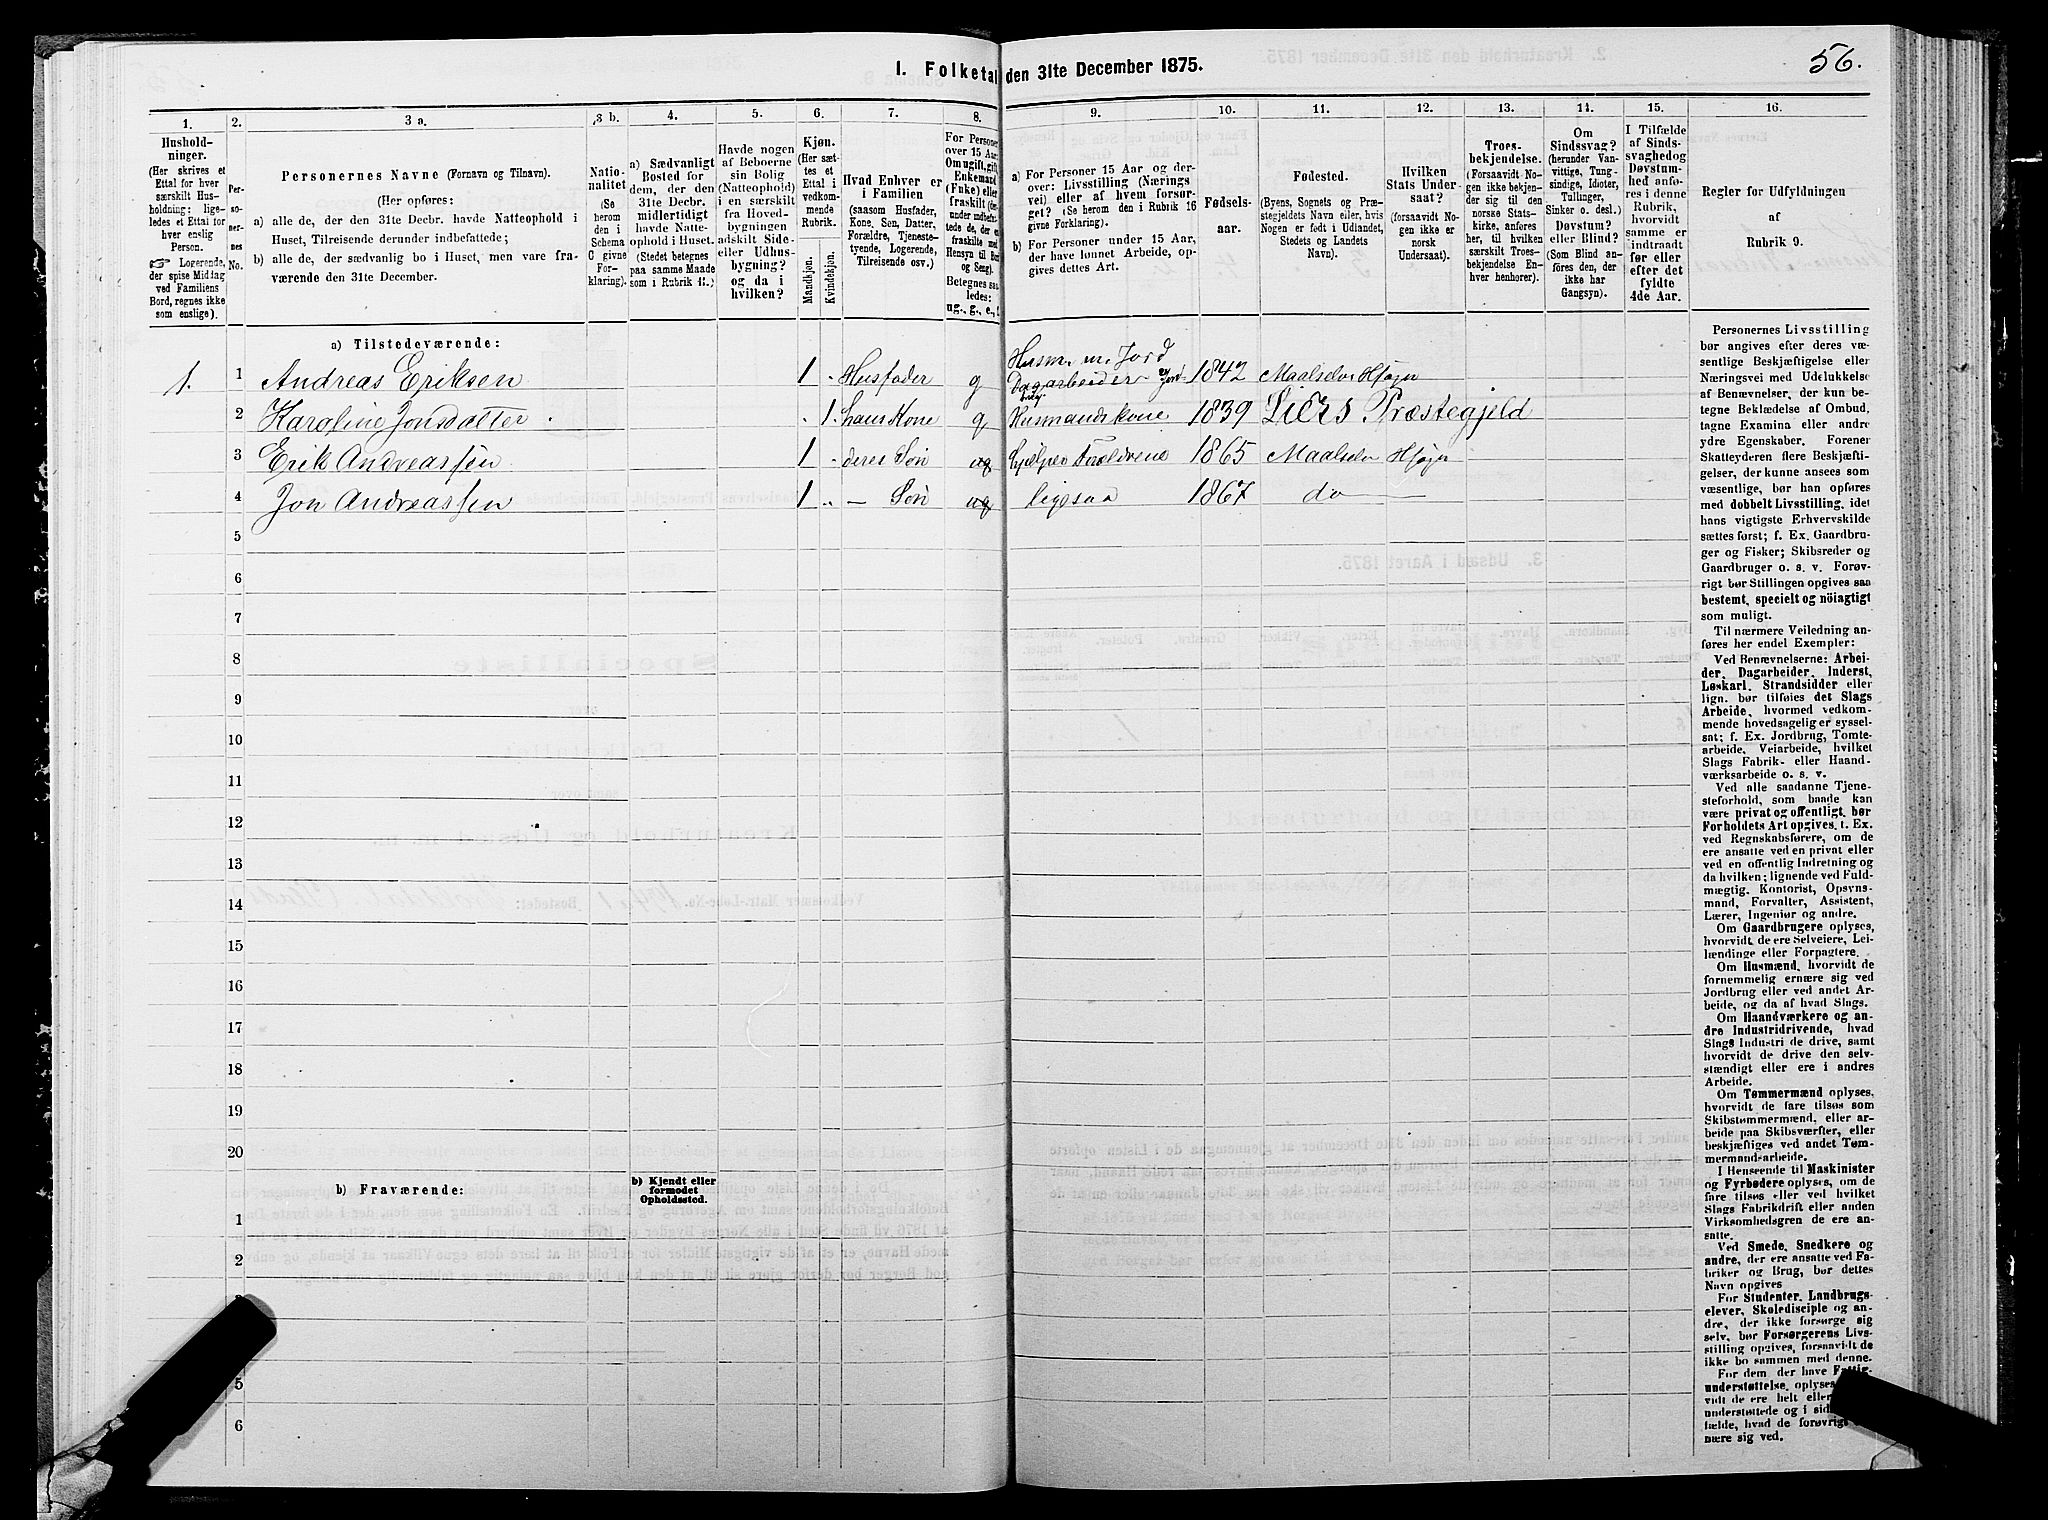 56.
I. Folketal den 31te December 1875.
1.
Hushold-
ninger.
(Her skrives et
Ettal for hver
særskilt Hus-
holdning; lige-
ledes et Ettal for
hver enslig
Person.
☞ Logerende,
der spise Middag
ved Familiens
Bord, regnes ikke
som enslige).
2.
Per-
so-
ner-
nes
No.
3 a.
Personernes Navne (Fornavn og Tilnavn).
(Her opføres:
a) alle de, der den 31te Decbr. havde Natteophold i
Huset, Tilreisende derunder indbefattede;
b) alle de, der sædvanlig bo i Huset, men vare fra-
værende den 31te December.
3 b.
Natio-
nalitet
(Se
herom
den i
Schema
C givne
For-
klaring).
4.
a) Sædvanligt
Bosted for
dem, der den
31te Decbr.
midlertidigt
havde Natte-
ophold i Huset.
(Stedet betegnes
paa samme Maade
som i Rubrik 11.)
5.
Havde nogen
af Beboerne
sin Bolig
(Natteophold)
i en særskilt
fra Hoved-
bygningen
adskilt Side-
eller Udhus-
bygning?
og da i
hvilken?
6.
Kjøn.
(Her sæt-
tes et
Ettal i
vedkom-
mende
Rubrik.
Mandkjøn.
Kvindekjøn.
7.
Hvad Enhver er
i Familien
(saasom Husfader,
Kone, Søn, Datter,
Forældre, Tjeneste-
tyende, Logerende,
Tilreisende osv.)
8.
For Personer
over 15 Aar:
Om ugift, gift,
Enkemand
(Enke) eller
fraskilt
Betegnes saa-
ledes:
ug., g., e.,
9.
a) For Personer 15 Aar og der-
over: Livsstilling (Nærings-
vei) eller af hvem forsør-
get? (Se herom i Rubrik 16
givne Forklaring).
b) For Personer under 15 Aar,
der have lønnet Arbeide, op-
gives dettes Art.
10.
Fødsels-
aar.
11.
Fødested.
(Byens, Sognets og Præ-
stegjeldets Navn eller, hvis
Nogen er født i Udlandet,
Stedets og Landets
Navn).
12.
Hvilken
Stats Under-
saat?
(forsaavidt No-
gen ikke er
norsk
Undersaat).
13.
Troes-
bekjendelse.
(Forsaavidt No-
gen ikke bekjen-
der sig til den
norske Stats-
kirke, anføres
her, til hvilken
særskilt Troes-
bekjendelse En-
hver henhører).
14.
Om
Sindssvag?
(herunder Van-
vittige, Tung-
sindige, Idioter,
Tullinger,
Sinker o. desl.)
Døvstum?
eller Blind?
(Som Blind an-
føres den, der
ikke har
Gangsyn).
15.
I Tilfælde
af Sinds-
svaghed og
Døvstum-
hed anfø-
res i denne
Rubrik,
hvorvidt
samme er
indtraadt
før eller
efter det
fyldte
4de Aar.
16.
Regler for Udfyldningen
af
Rubrik 9.
a) Tilstedeværende:
1. 1 Andreas Eriksen 1 Husfader g Husm. m. Jord Dagarbeider 1842 Maalselv
2 Karoline Jonsdatter 1. hans Kone g Husmandskone 1839 Præstegjeld
3 Erik Andreassen 1 deres Søn ug hjælper Forældrene 1865 Maalselv
4 Jon Andreassen 1 — Søn ug ligesaa 1867 do
5
6
7
8
9
10
11
12
13
14
15
16
17
18
19
20
b) Fraværende:
b) Kjendt eller
formodet
Opholdssted.
1
2
5
6
Personernes Livsstilling
bør angives efter deres væ-
sentlige Beskjæftigelse eller
Næringsvei med Udelukkelse
af Benævnelser, der kun be-
tegne Beklædelse af Ombud,
tagne Examina eller andre
ydre Egenskaber. Forener
Skatteyderen flere Beskjæfti-
gelser, der kunne ansees som
væsentlige, bør han opføres
med dobbelt Livsstilling, idet
hans vigtigste Erhvervskilde
sættes først; f. Ex. Gaardbru-
ger og Fisker; Skibsreder og
Gaardbruger o. s. v. Forøv-
rigt bør Stillingen opgives saa
bestemt, specielt og nöiagtigt
som muligt.
Til nærmere Veiledning an-
føres her endel Exempler:
Ved Benævnelserne: Arbei-
der, Dagarbeider, Inderst,
Løskarl, Strandsidder eller
lign. bør tilføies det Slags
Arbeide, hvormed vedkom-
mende hovedsagelig er syssel-
sat; f. Ex. Jordbrug, Tomte-
arbeide, Veiarbeide, hvilket
Slags Fabrik- eller Haand-
værksarbeide o. s. v.
Ved alle saadanne Tjene-
steforhold, som baade kan
være privat og offentligt, bør
Forholdets Art opgives, t. Ex.
ved Regnskabsførere, om de
ere ansatte ved en privat eller
ved en offentlig Indretning og
da hvilken; lignende ved Fuld-
mægtig, Kontorist, Opsyns-
mand, Forvalter, Assistent,
Lærer, Ingeniør og andre.
Om Gaardbrugere oplyses,
hvorvidt de ere Selveiere, Lei-
lændinge eller Forpagtere.
Om Husmænd, hvorvidt de
fornemmelig ernære sig ved
Jordbrug eller ved andet Ar-
beide, og da af hvad Slags.
Om Haandværkere og an-
dre Industridrivende, hvad
Slags Industri de drive, samt
hvorvidt de drive den selv-
stændigt eller ere i andres
Arbeide.
Om Tømmermænd oplyses,
hvorvidt de fare tilsøs som
Skibstømmermænd, eller ar-
beide paa Skibsværfter, eller
beskjæftiges ved andet Tøm-
mermandsarbeide.
I Henseende til Maskinister
og Fyrbødere oplyses, om de
fare tilsøs eller ved hvilket
Slags Fabrikdrift eller anden
Virksomhedsgren de ere an-
satte.
Ved Smede, Snedkere og
andre, der ere ansatte ved Fa-
briker og Brug, bør dettes
Navn opgives
For Studenter, Landbrugs-
elever, Skoledisciple og an-
dre, der ikke forsørge sig
selv, bør Forsørgerens Livs-
stilling opgives, forsaavidt de
ikke bo sammen med denne.
For dem, der have Fattig-
understøttelse, oplyses
vidt de ere helt eller
understøttede og i sid
fælde, hvad de forøvrigt
nære sig ved.